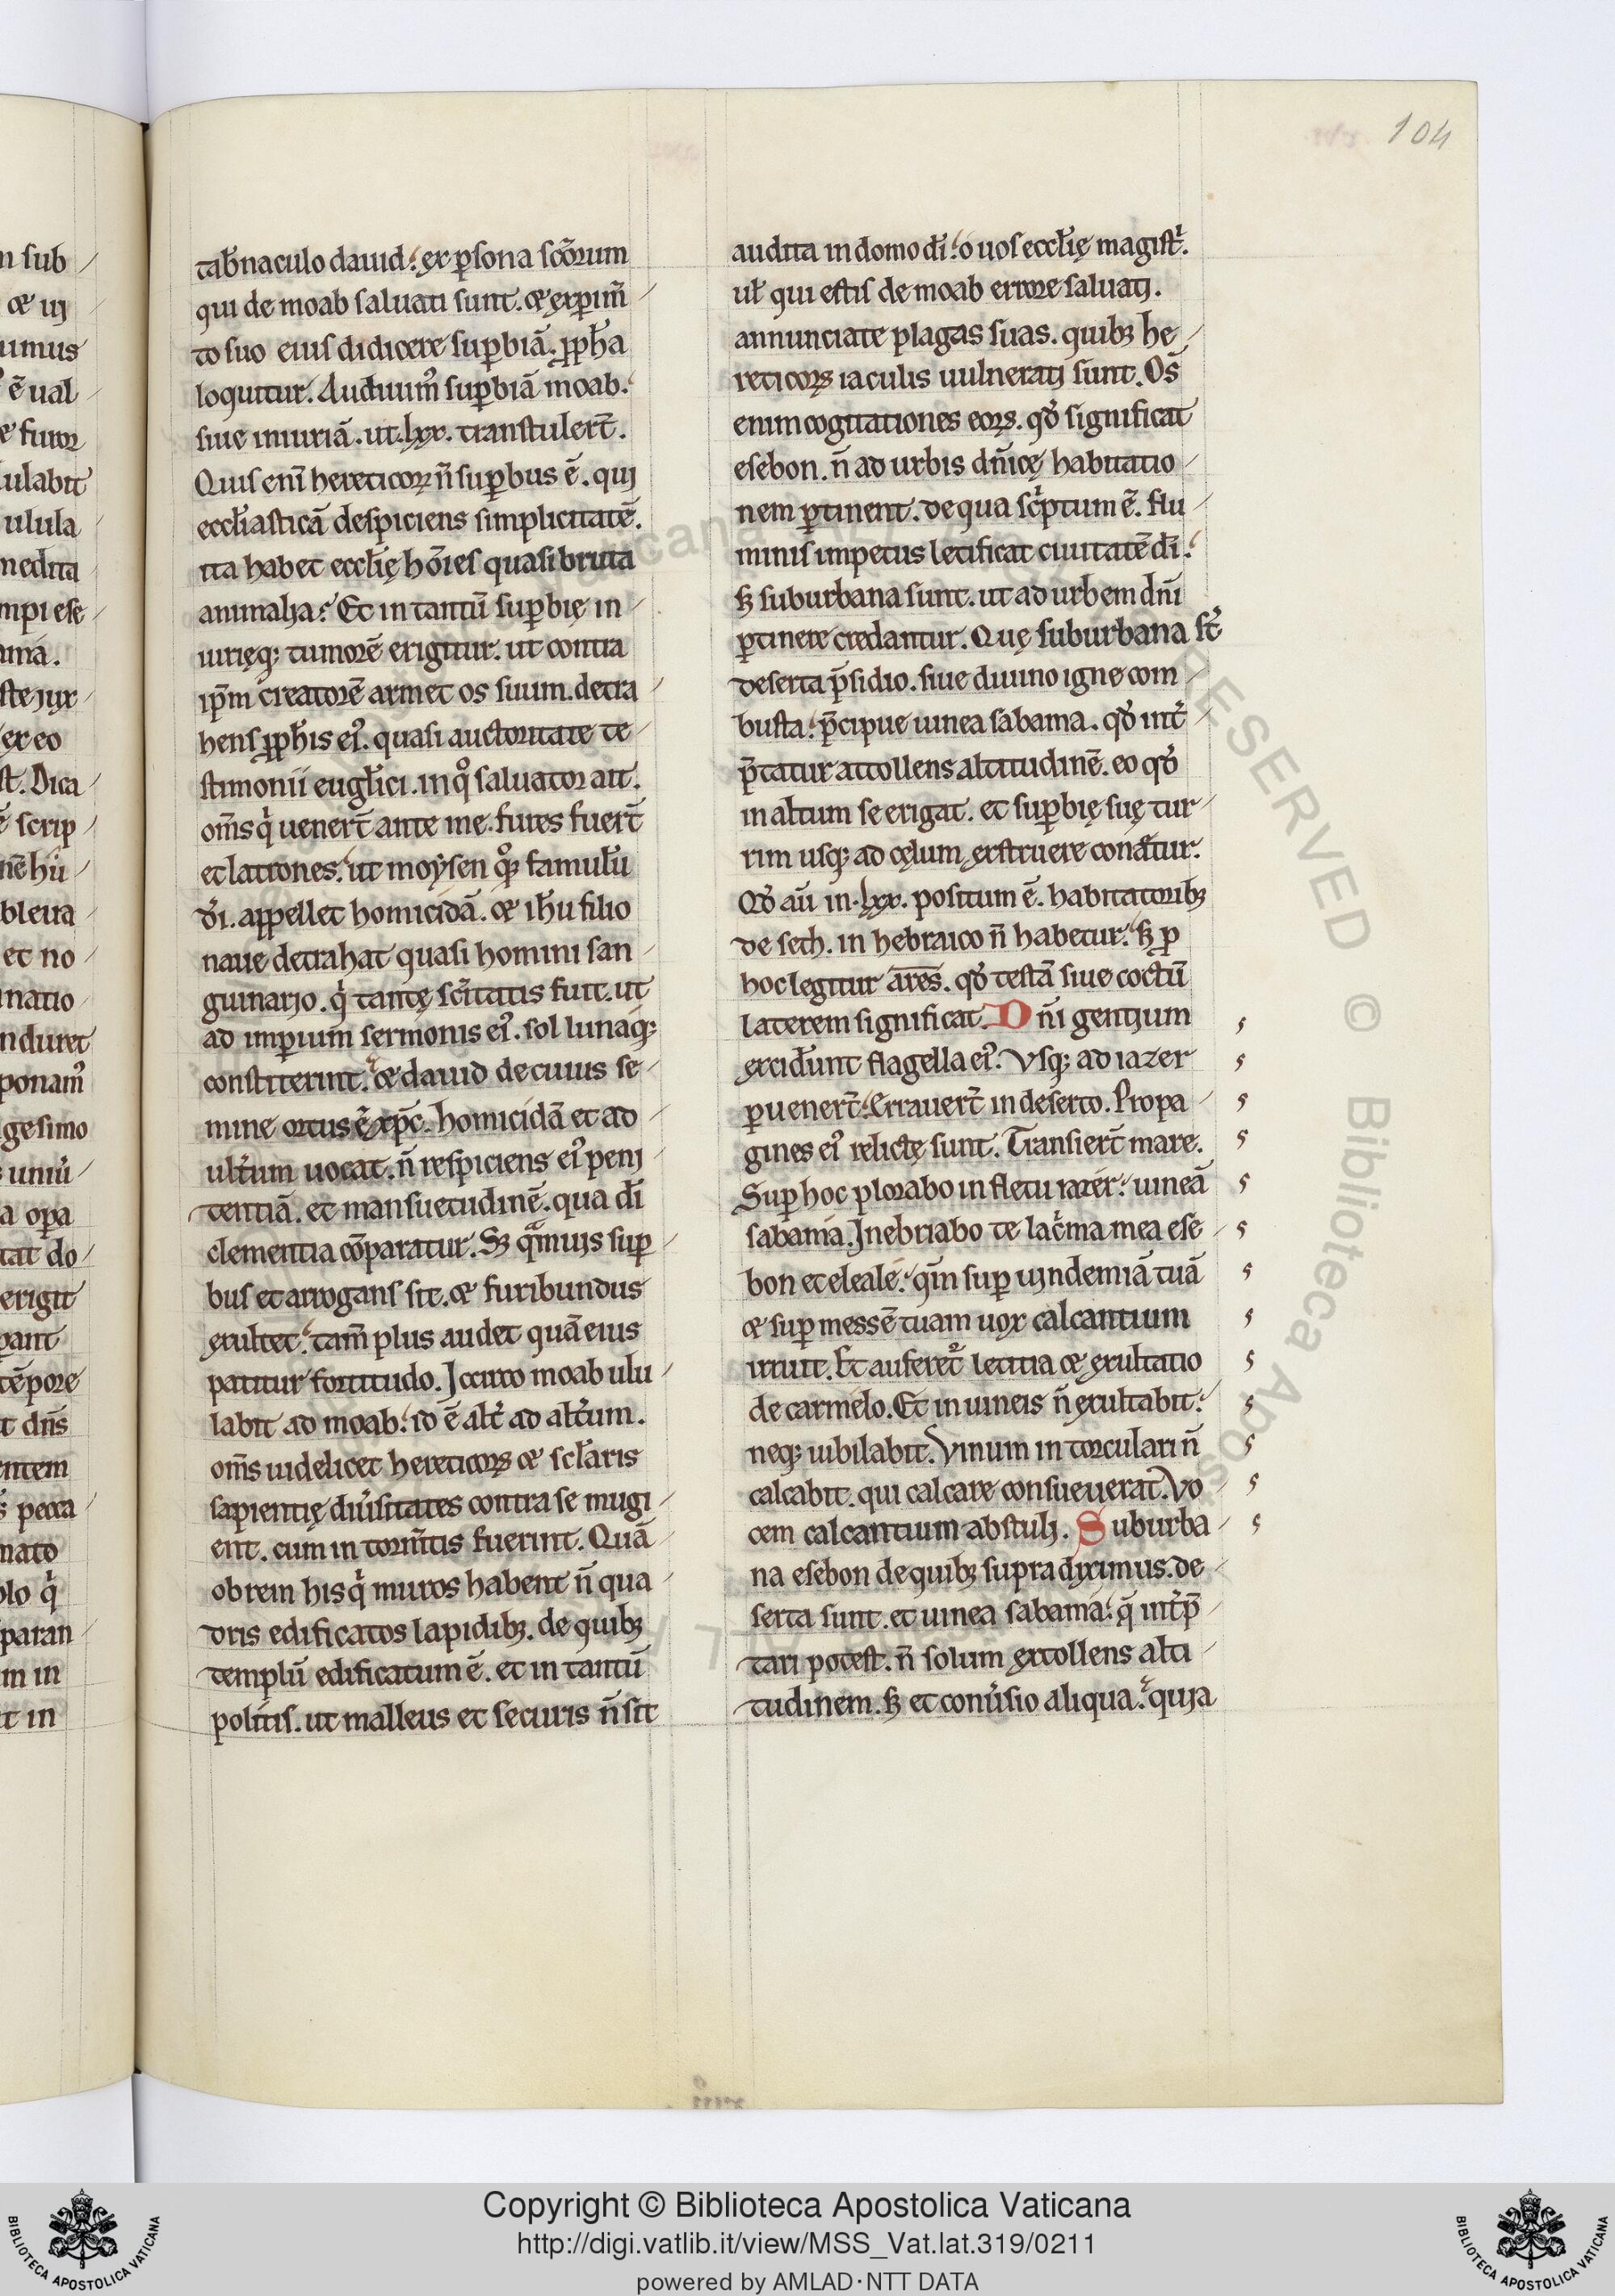 104
tab̄naculo dauid. ex ꝑsona sc̄orum
qui de moab saluati sunt. & exꝑim̄
to suo eius didicere suꝑbiā. ꝓph̄a
loquitur. Audiuim᷒ suꝑbiā moab.
siue iniuriā. ut .lxx. transtuler̄t.
Quis eni᷒ hereticoꝝ n̄ suꝑbus ē. qui
eccl̄iasticā despiciens simplicitatē.
ita habet eccl̄ię hōies quasi bruta
animalia? Et in tantū suꝑbię in
iurięq; tumorē erigitur. ut contra
ip̄m creatorē armet os suum. detra
hens ꝓph̄is ei᷒. quasi auctoritate te
stimonii eugl̄ici. in qͦ saluator ait.
om̄s qͥ uener̄t ante me. fures fuer̄t
et latrones. ut moẏsen qͦꝗ famulū
d̄i. appellet homicidā. & ih̄u filio
naue detrahat quasi homini san
guinario. qͥ tantę sc̄itatis fuit. ut
ad imꝑium sermonis ei᷒. sol lunaq;
constiterint. & dauid de cuius se
mine ortus ē xp̄c. homicidā et ad
ult̄um uocat. n̄ respiciens ei᷒ peni
tentiā. et mansuetudinē. qua d̄i
clementia cōparatur. Sꝫ qͣmuis suꝑ
bus et arrogans sit. & furibundus
exultet. tam̄ plus audet quā eius
patitur fortitudo. Iccirco moab ulu
labit ad moab. id ē alt̄ ad alt̄um.
om̄s uidelicet hereticoꝝ & scl̄aris
sapientię diu̾sitates contra se mugi
ent. cum in torm̄tis fuerint. Quā
obrem his qͥ muros habent n̄ qua
dris edificatos lapidibꝫ. de quibꝫ
templū edificatum ē. et in tantū
politis. ut malleus et securis n̄ sit
audita in domo d̄i. o uos eccl̄ię magist̄.
ul̄ qui estis de moab errore saluati.
annunciate plagas suas. quibꝫ he
reticoꝝ iaculis uulnerati sunt. Om̄s
enim cogitationes eoꝝ. qd̾ significat
esebon. n̄ ad urbis dn̄icę habitatio
nem ꝑtinent. de qua sc̾ptum ē. flu
minis impetus letificat ciuitatē d̄i.
sꝫ suburbana sunt. ut ad urbem dn̄i
ꝑtinere credantur. Quę suburbana st̄
deserta p̄sidio. siue diuino igne com
busta. p̄cipue uinea sabama. qd̾ int̾
p̄tatur attollens altitudinē. eo qd̾
in altum se erigat. et suꝑbię suę tur
rim usq; ad cęlum exstruere conatur.
Qd̾ aū in .lxx. positum ē. habitatoribꝫ
de seth. in hebraico n̄ habetur. sꝫ ꝓ
hoc legitur ares. qd̾ testā siue coctū
laterem significat. Dn̄i gentium
excider̄unt flagella ei᷒. Vsq; ad iazer
ꝑuener̄t. Errauer̄t in deserto. Propa
gines ei᷒ relictę sunt. Transier̄t mare.
Suꝑ hoc plorabo in fletu iazer. uineā
sabama. Inebriabo te lac̾ma mea ese
bon et eleale. qm̄ suꝑ uindemiā tuā
& suꝑ messē tuam uox calcantium
irruit. Et auferet᷒ letitia & exultatio
de carmelo. Et in uineis n̄ exultabit.
neq; iubilabit. Vinum in torculari n̄
calcabit. qui calcare consueuerat. Vo
cem calcantium abstuli. Suburba
na esebon de quibꝫ supra diximus. de
serta sunt. et uinea sabama. q̄ int̾p̄
tari potest. n̄ solum extollens alti
tudinem. sꝫ et conu̾sio aliqua. quia
Copyright © Biblioteca Apostolica Vaticana
http://digi.vatlib.it/view/MSS_Vat.lat.319/0211
powered by AMLAD·NTT DATA